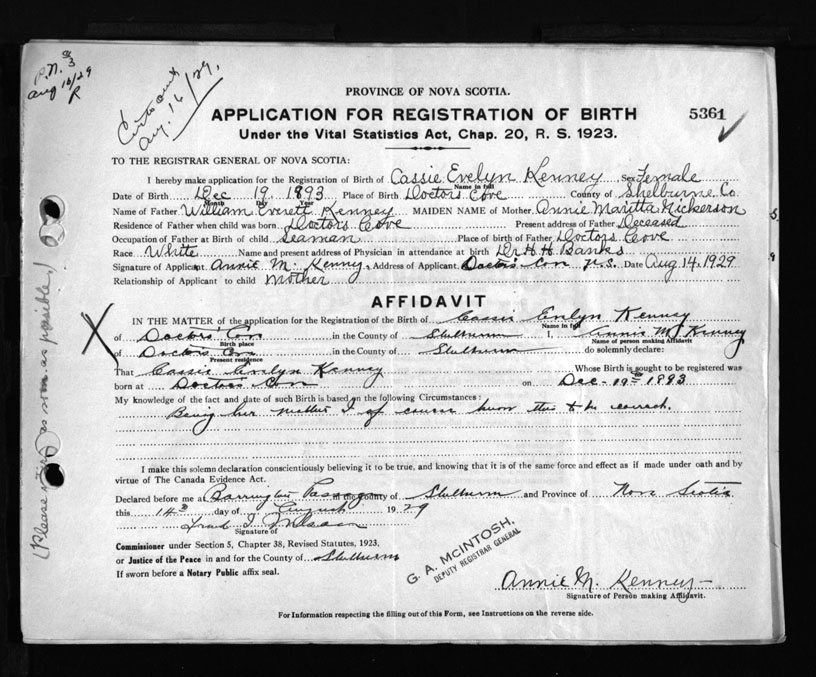 P.N. 3
Aug 16/29
R
Aug. 16/29.
PROVINCE OF NOVA SCOTIA.
APPLICATION FOR REGISTRATION OF BIRTH
5361
Under the Vital Statistics Act, Chap. 20, R. S. 1923.
TO THE REGISTRAR GENERAL OF NOVA SCOTIA:
I hereby make application for the Registration of Birth of Cassie Evelyn Kenney Sex Female
Name in full
Date of Birth Dec 19 1893 Place of Birth Doctors Cove County of Shelburne Co.
Month Day Year
Name of Father William Everett Kenney MAIDEN NAME of Mother Annie Maritta Nickerson
Residence of Father when child was born Doctors Cove Present address of Father Deceased
Occupation of Father at Birth of child Seaman Place of birth of Father Doctors Cove
Race White Name and present address of Physician in attendance at birth Dr H. H. Banks
Signature of Applicant Annie M. Kenney, Address of Applicant Doctors Cove N.S. Date Aug 14, 1929
Relationship of Applicant to child Mother
AFFIDAVIT
X
IN THE MATTER of the application for the Registration of the Birth of Cassie Evelyn Kenney
Name in full
of Doctors Cove in the County of Shelburne I, Annie M. Kenney
Birth place Name of person making Affidavit
of Doctors Cove in the County of Shelburne do solemnly declare:
Present residence
That Cassie Evelyn Kenney Whose Birth is sought to be registered was
born at Doctors Cove on Dec. 19th 1893
My knowledge of the fact and date of such Birth is based on the following Circumstances:
Being her mother I of course know this to be correct.
I make this solemn declaration conscientiously believing it to be true, and knowing that it is of the same force and effect as if made under oath and by
virtue of The Canada Evidence Act.
Declared before me at Barrington Passage in the county of Shelburne and Province of Nova Scotia
this 14th day of August 1929
Signature of
Commissioner under Section 5, Chapter 38, Revised Statutes, 1923,
or Justice of the Peace in and for the County of Shelburne
If sworn before a Notary Public affix seal.
G. A. McINTOSH,
DEPUTY REGISTRAR GENERAL
Annie M. Kenney
Signature of Person making Affidavit.
For Information respecting the filling out of this Form, see Instructions on the reverse side.
(Please as soon as possible.)